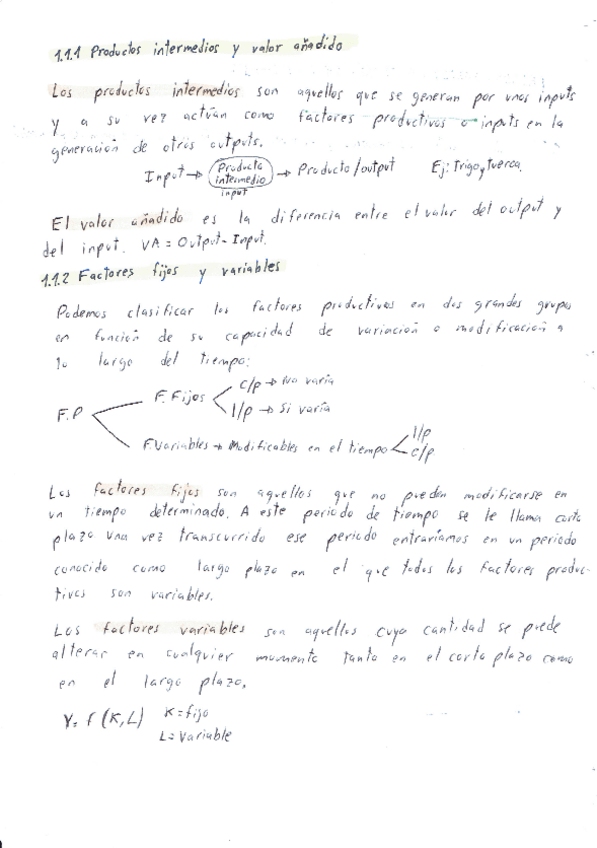 1.1.1 Productos intermedios y valor añadido
Los productos intermedios son aquellos que se generan por unos inputs
y a su vez actúan como factores productivos o inputs en la
generación de otros outputs.
Input → Producto intermedio input → Producto/output Ej: Trigo y tuerca.
El valor añadido es la diferencia entre el valor del output y
del input. VA = Output - Input.
1.1.2 Factores fijos y variables
Podemos clasificar los factores productivos en dos grandes grupos
en función de su capacidad de variación o modificación a
lo largo del tiempo:
c/p → No varía
F. Fijos
l/p → Si varía
F.P
l/p
F. Variables → Modificables en el tiempo
c/p
Los factores fijos son aquellos que no pueden modificarse en
un tiempo determinado. A este periodo de tiempo se le llama corto
plazo una vez transcurrido ese periodo entraríamos en un periodo
conocido como largo plazo en el que todos los factores produc-
tivos son variables.
Los factores variables son aquellos cuya cantidad se puede
alterar en cualquier momento tanto en el corto plazo como
en el largo plazo.
Y = f (K, L) K = fijo
L = Variable